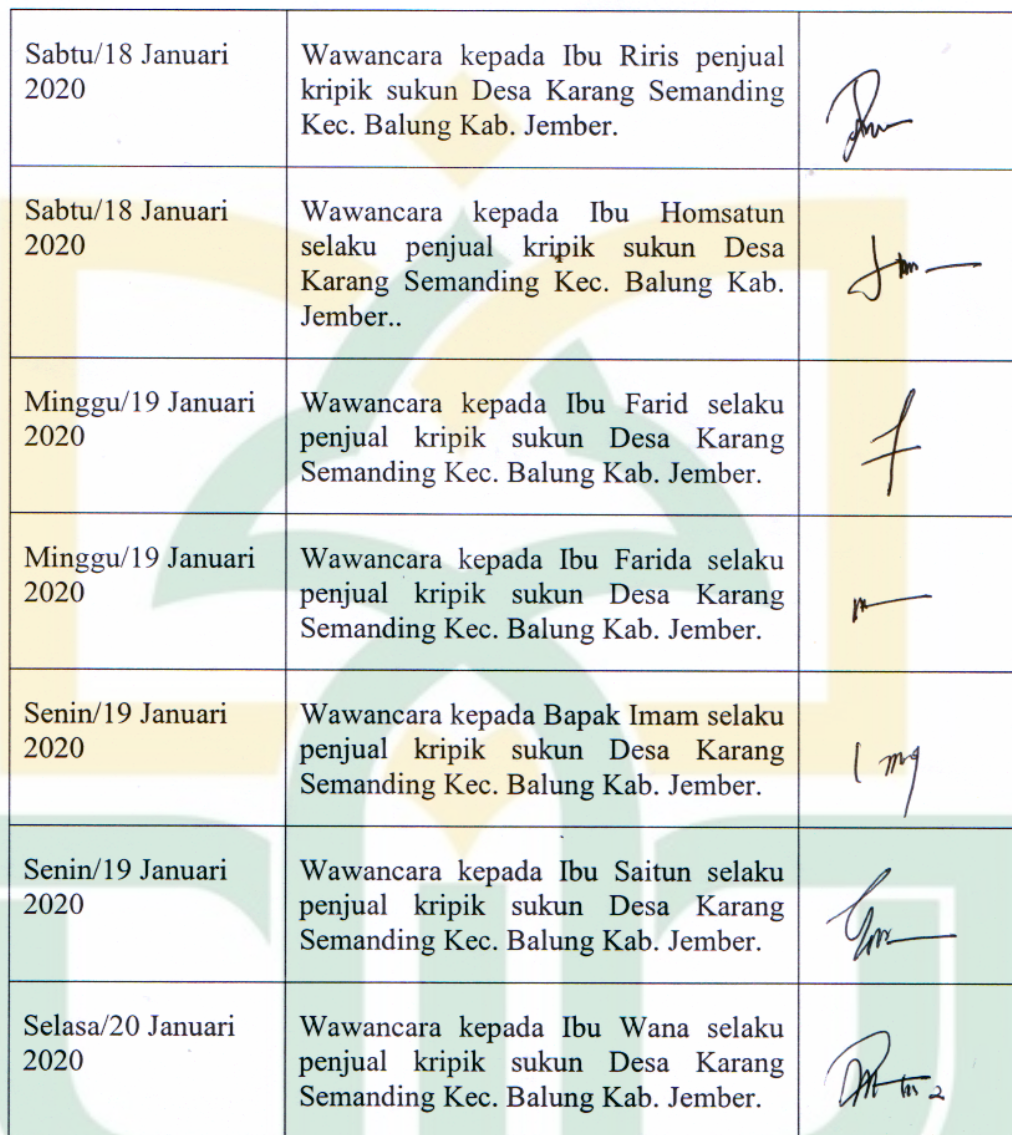 Sabtu/18 Januari
2020
Wawancara kepada Ibu Riris penjual
kripik sukun Desa Karang Semanding
Kec. Balung Kab. Jember.
Sabtu/18 Januari
2020
Wawancara kepada Ibu Homsatun
selaku penjual kripik sukun Desa
Karang Semanding Kec. Balung Kab.
Jember..
Minggu/19 Januari
2020
Wawancara kepada Ibu Farid selaku
penjual kripik sukun Desa Karang
Semanding Kec. Balung Kab. Jember.
Minggu/19 Januari
2020
Wawancara kepada Ibu Farida selaku
penjual kripik sukun Desa Karang
Semanding Kec. Balung Kab. Jember.
Senin/19 Januari
2020
Wawancara kepada Bapak Imam selaku
penjual kripik sukun Desa Karang
Semanding Kec. Balung Kab. Jember.
Senin/19 Januari
2020
Wawancara kepada Ibu Saitun selaku
penjual kripik sukun Desa Karang
Semanding Kec. Balung Kab. Jember.
Selasa/20 Januari
2020
Wawancara kepada Ibu Wana selaku
penjual kripik sukun Desa Karang
Semanding Kec. Balung Kab. Jember.